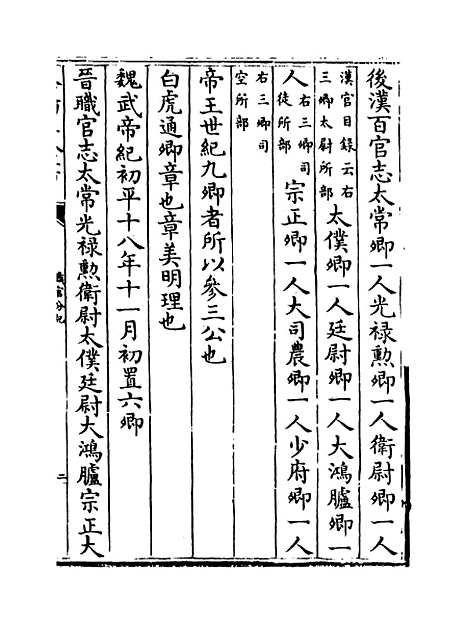 後漢百官志太常卿一人光禄勲卿一人衛尉卿一人
漢官目録云右
三卿太尉所部
太僕卿一人廷尉卿一人大鴻臚卿一
人
右三卿司
徒所部
宗正卿一人大司農卿一人少府卿一人
右三卿司
空所部
帝王世紀九卿者所以參三公也
白虎通卿章也章美明理也
魏武帝紀初平十八年十一月初置六卿
晉職官志太常光禄勲衛尉太僕廷尉大鴻臚宗正大
職官分紀
二